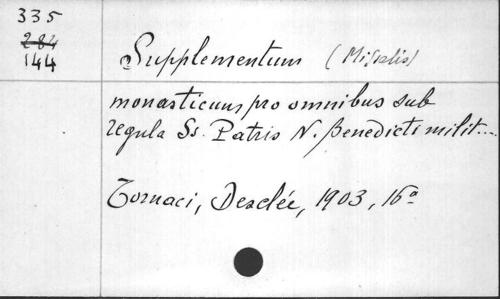 335
284
144
Supplementum (Missalis)
monasticum pro omnibus sub
regula Ss. Patris N. Benedicti milit...
Tornaci, Desclée, 1903, 16ª